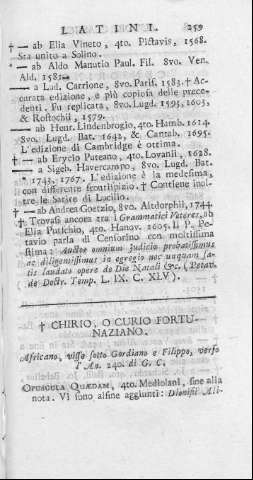 LATINI. 259
† — ab Elia Vineto, 4to. Pictavis, 1568.
Sta unito a Solino.
* — ab Aldo Manutio Paul. Fil. 8vo. Ven.
Ald. 1581.
— a Lud. Carrione, 8vo. Paris. 1583. † Ac-
curata edizione, e più copiosa delle prece-
denti. Fu replicata, 8vo. Lugd. 1593, 1605,
& Rostochii, 1579.
— ab Henr. Lindenbrogio, 4to. Hamb. 1614.
8vo. Lugd. Bat. 1642, & Cantab. 1695.
L'edizione di Cambridge è ottima.
— ab Erycio Puteano, 4to. Lovanii, 1628.
— a Sigeb. Havercampo, 8vo. Lugd. Bat.
1743, 1767. L'edizione è la medesima,
con differente frontispizio. † Contiene inol-
tre le Satire di Lucilio.
† — ab Andrea Goetzio, 8vo. Altdorphii, 1744.
†. Trovasi ancora tra i Grammatici Veteres, ab
Elia Putschio, 4to. Hanov. 1605. Il P. Pe-
tavio parla di Censorino con moltissima
stima: Auctor omnium judicio probatissimus
ac diligentissimus in egregio nec unquam sa-
tis laudato opere de Die Natali &c. (Petav.
de Doctr. Temp. L. IX. C. XLV).
† CHIRIO, O CURIO FORTU-
NAZIANO.
Africano, visse sotto Gordiano e Filippo, verso
l'An. 240. di G. C.
OPUSCULA QUÆDAM, 4to. Mediolani, sine alla
nota. Vi sono alfine aggiunti: Dionisii Ali-